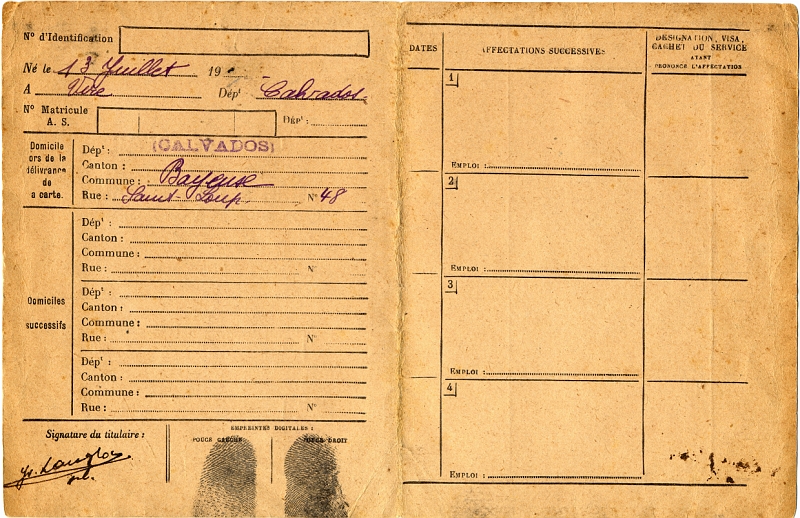 N° d'Identification
Né le 13 Juillet 19
A Vire Dépt Calvados
N° Matricule
A. S. Dépt :
Domicile
ors de la
délivrance
de
a carte.
Dépt : (CALVADOS)
Canton :
Commune : Bayeux
Rue : Saint-Loup N° 48
Domiciles
successifs
Dépt :
Canton :
Commune :
Rue : N°
Dépt :
Canton :
Commune :
Rue : N°
Dépt :
Canton :
Commune :
Rue : N°
Signature du titulaire :
EMPREINTES DIGITALES :
POUCE GAUCHE POUCE DROIT
DATES
AFFECTATIONS SUCCESSIVES
DÉSIGNATION, VISA,
CACHET DU SERVICE
AYANT
PRONONCÉ L'AFFECTATION
1
EMPLOI :
2
EMPLOI :
3
EMPLOI :
4
EMPLOI :